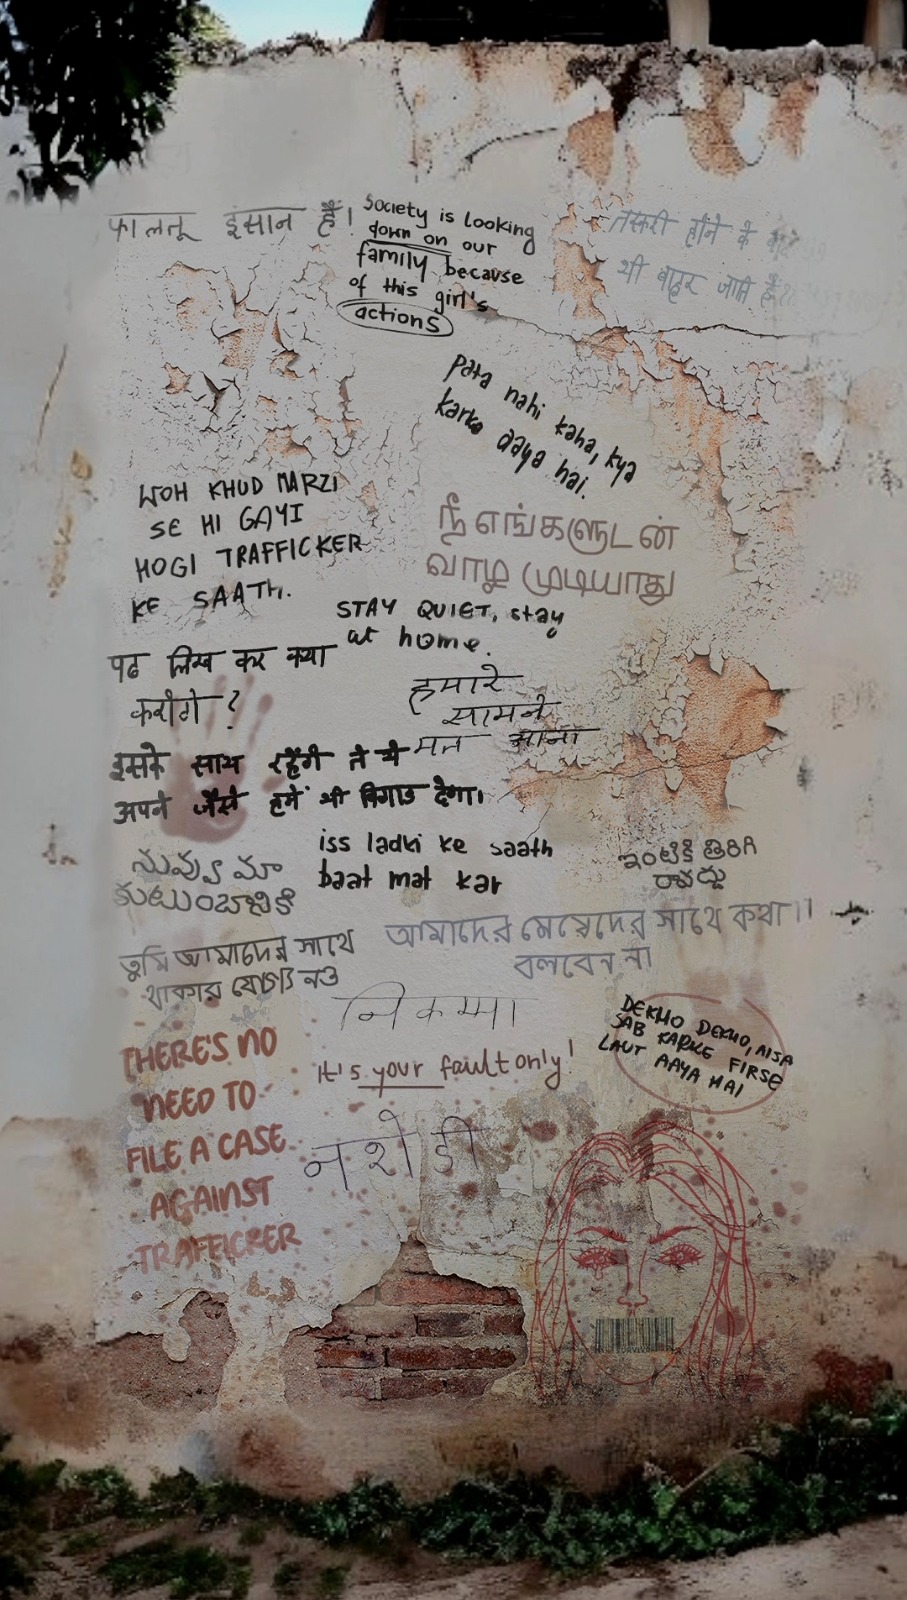 फालतू इंसान हैं!
Society is looking
down on our
family because
of this girl's
actions
तस्करी होने के
भी बाहर जाते हैं
Pata nahi kaha, kya
karke aaya hai.
WOH KHUD MARZI
SE HI GAYI
HOGI TRAFFICKER
KE SAATH.
நீ எங்களுடன்
வாழ முடியாது
STAY QUIET, stay
at home.
पढ लिख कर क्या
करोगे ?
हमारे
सामने
मत आना
इसके साथ रहेंगे तो ये
अपने जैसे हमें भी बिगाड देगा।
iss ladki ke saath
baat mat kar
నువ్వు మా
కుటుంబానికి
ఇంటికి తిరిగి
రావద్దు
তুমি আমাদের সাথে
থাকার যোগ্য নও
আমাদের মেয়েদের সাথে কথা।।
বলবেন না
निकम्मा
DEKHO DEKHO, AISA
SAB KARKE FIRSE
LAUT AAYA HAI
THERE'S NO
NEED TO
FILE A CASE
AGAINST
TRAFFICKER
It's your fault only!
नशेडी